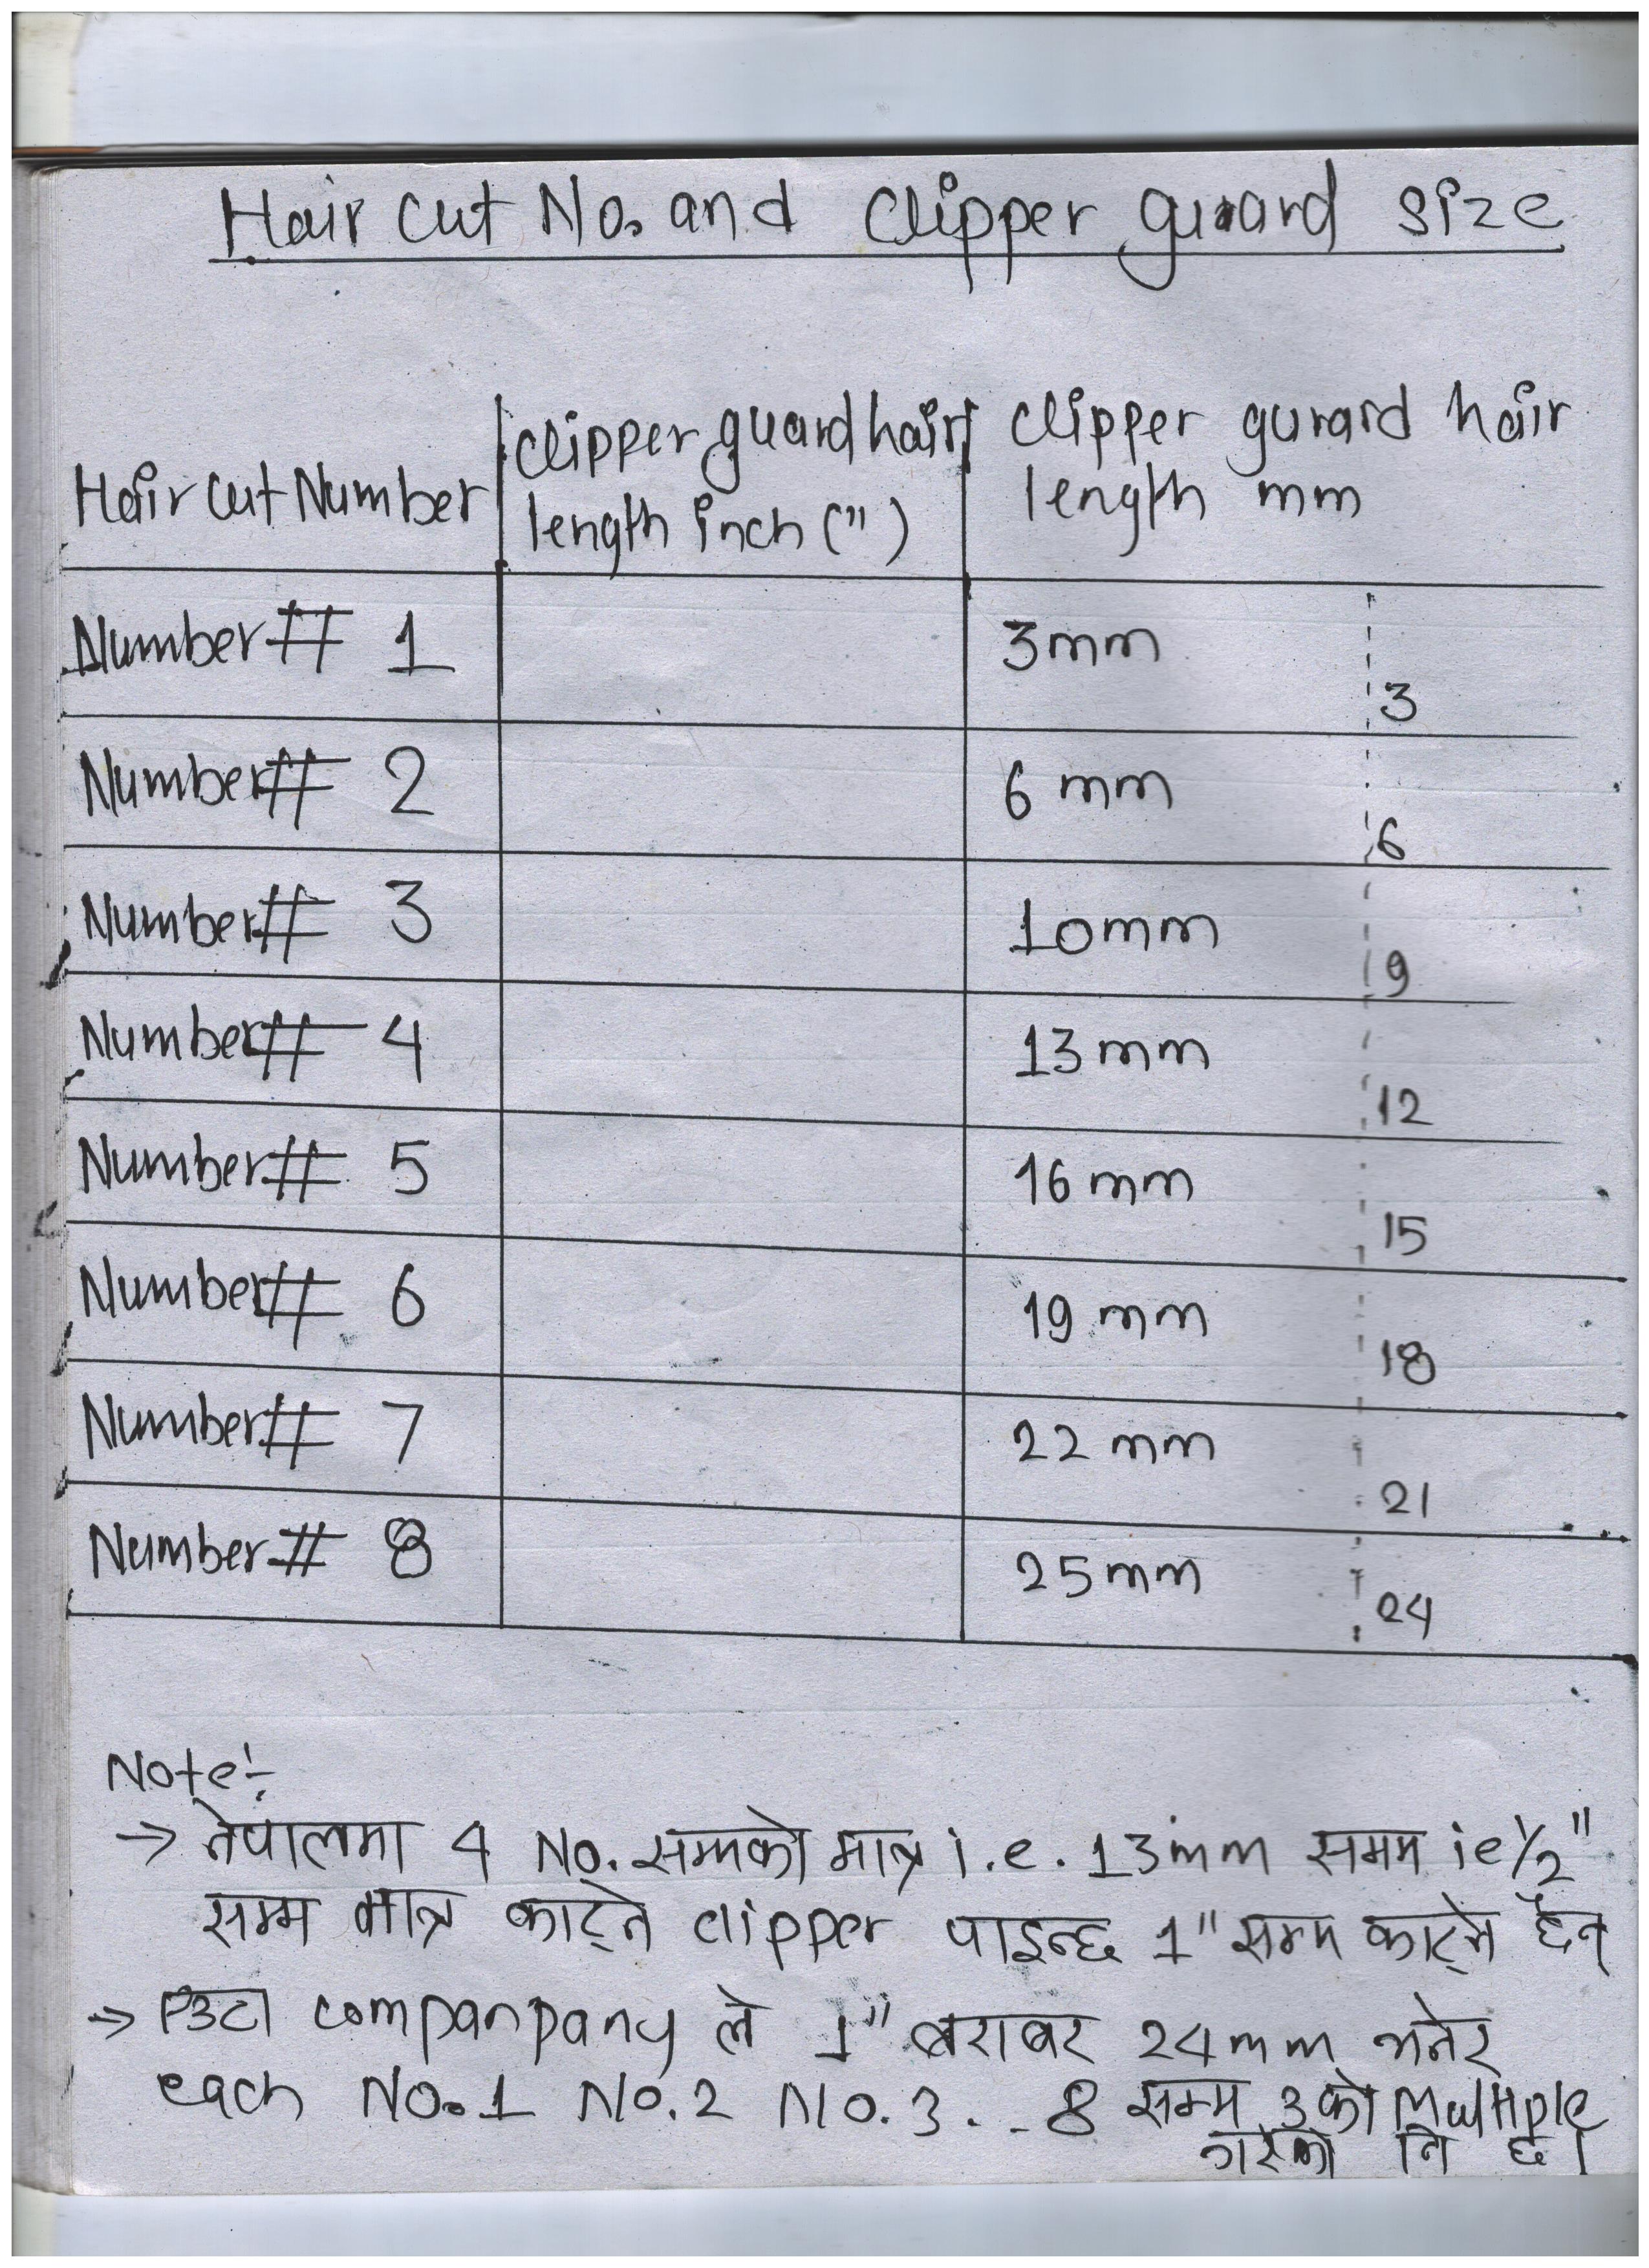 Hair cut No. and Clipper guard size
Hair cut Number | clipper guard hair length inch (") | clipper gurard hair length mm
Number# 1 | | 3mm | 3
Number# 2 | | 6 mm | 6
Number# 3 | | 10mm | 9
Number# 4 | | 13mm | 12
Number# 5 | | 16 mm | 15
Number# 6 | | 19 mm | 18
Number# 7 | | 22 mm | 21
Number# 8 | | 25mm | 24
Note:-
→ नेपालमा 4 No. सम्मको मात्र i.e. 13mm सम्म ie 1/2"
सम्म मात्र काट्ने clipper पाइन्छ 1" सम्म काट्ने छैन
→ एउटा companpany ले 1" बराबर 24mm भनेर
each No.1 No.2 No.3... 8 सम्म 3को Multiple
गरेको नि छ।